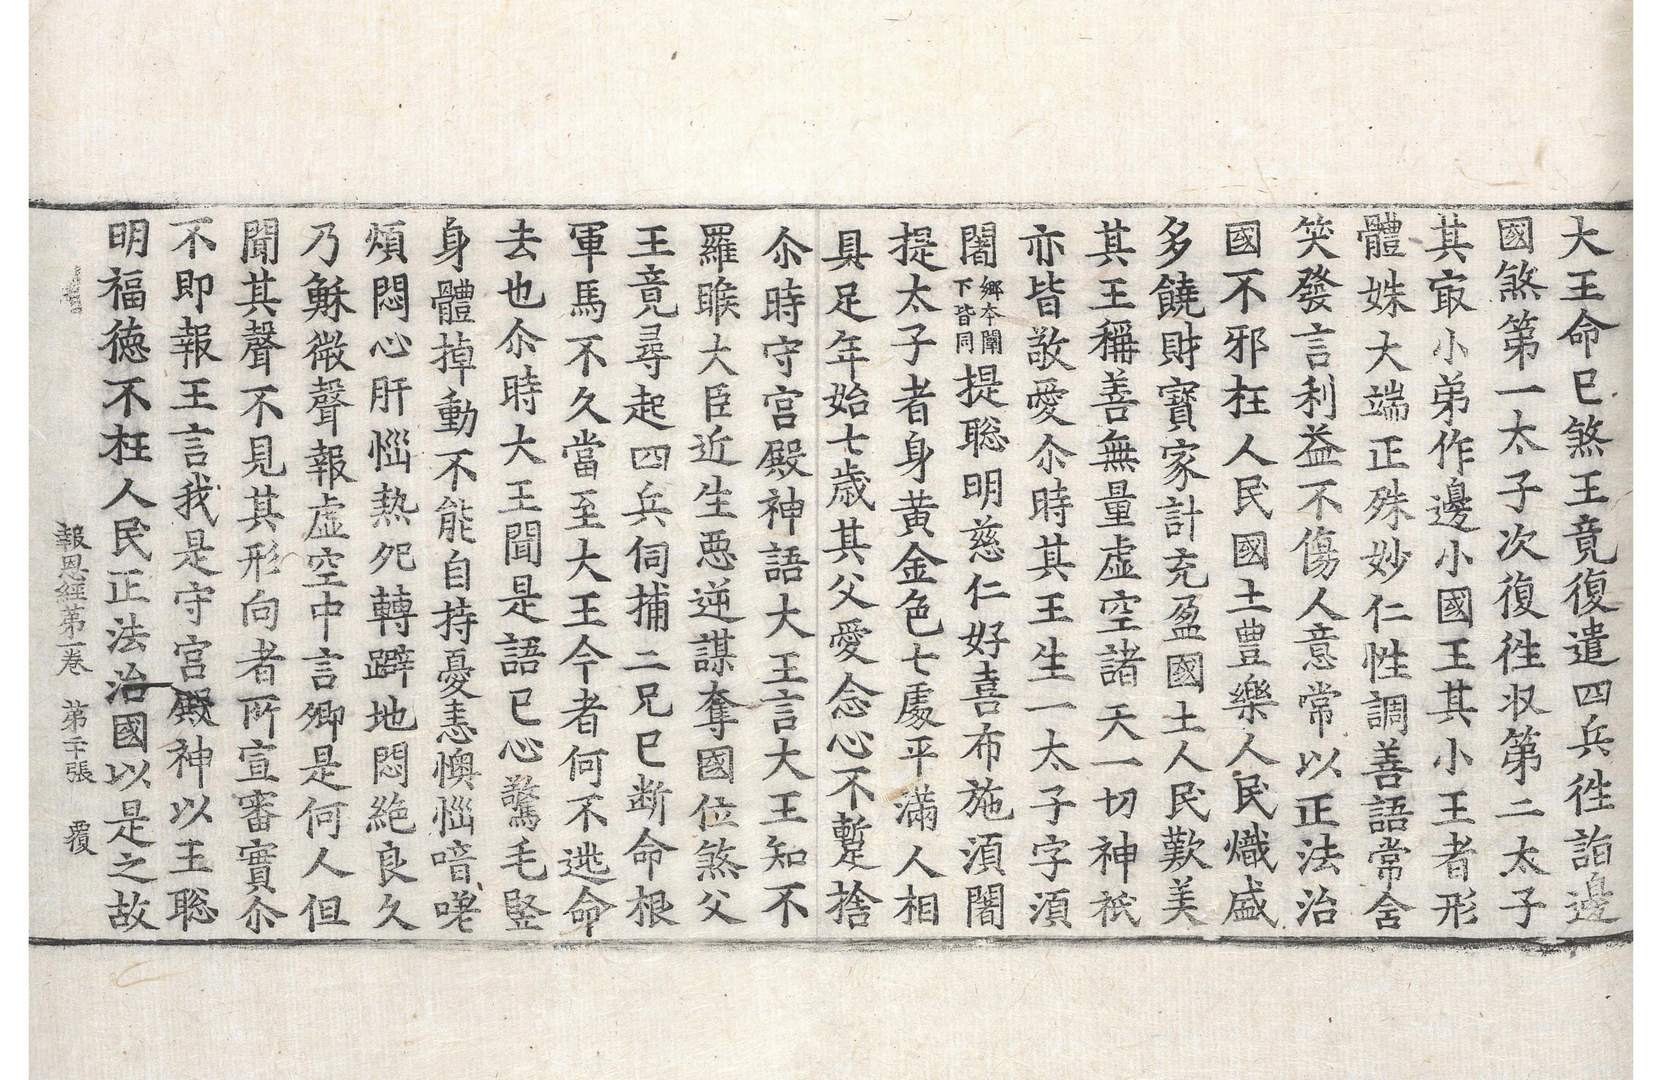 大王命已煞王竟復遣四兵徃詣邊
國煞第一太子次復徃収第二太子
其㝡小弟作邊小國王其小王者形
體姝大端正殊妙仁性調善語常含
笑發言利益不傷人意常以正法治
國不邪枉人民國土豊樂人民熾盛
多饒財寳家計充盈國土人民歎美
其王稱善無量虛空諸天一切神祇
亦皆敬愛尒時其王生一太子字湏
闍鄉本闡下皆同提聡明慈仁好喜布施湏闍
提太子者身黃金色七處平滿人相
具足年始七歲其父愛念心不蹔捨
尒時守宮殿神語大王言大王知不
羅睺大臣近生惡逆謀奪國位煞父
王竟尋起四兵伺捕二兄已断命根
軍馬不久當至大王今者何不逃命
去也尒時大王聞是語已心驚毛竪
身體掉動不能自持憂恚懊惱喑嗟
煩悶心肝惱熱𡖉轉躃地悶絶良久
乃穌微聲報虛空中言卿是何人但
聞其聲不見其形向者所宣審實尒
不即報王言我是守宮殿神以王聡
明福德不枉人民正法治國以是之故
報恩經第一卷　第二十張　覆